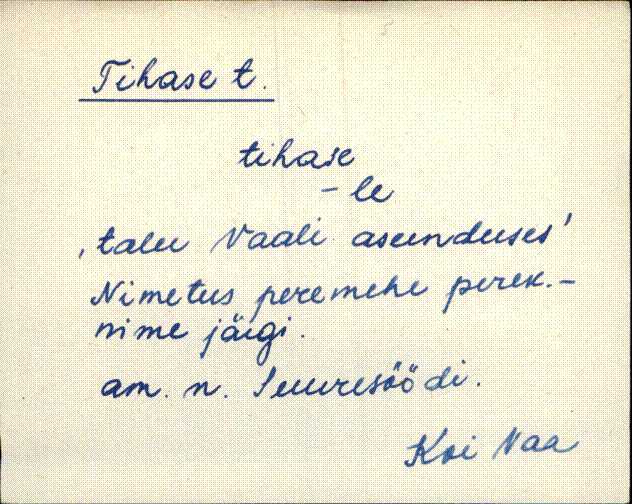 Tihase t.
tihase
- le
, talu Vaali asunduses'
Nimetus peremehe perek.-
nime järgi.
am. n. Suuresöödi.
Koi Vaa